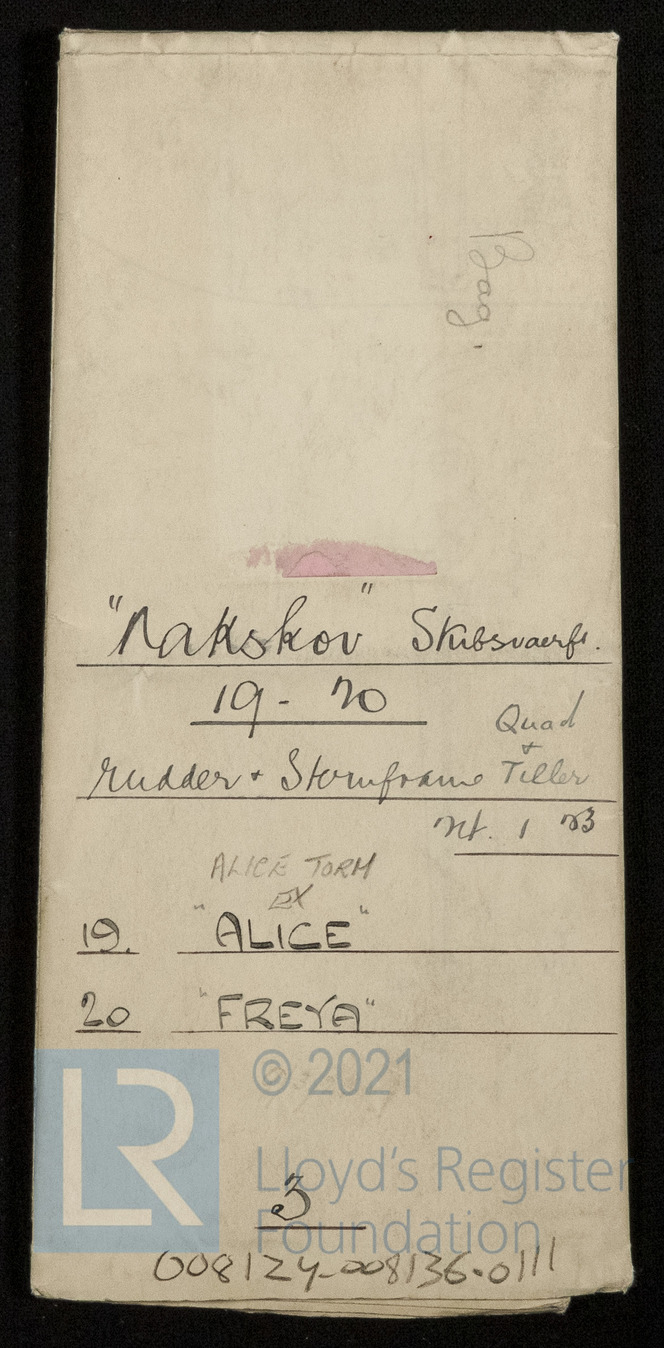 Bag.
"Nakskov" Skibsvaerft.
19 - 20
Quad
+
Rudder + Sternframe Tiller
1
ALICE TORM
EX
19. "ALICE"
20 "FREYA"
LR © 2021
Lloyd's Register
3
Foundation
008124-008136-0111